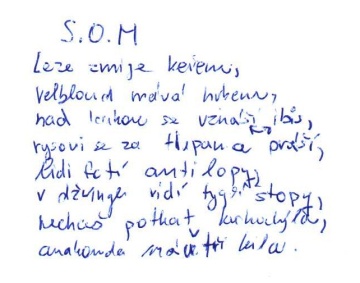 S.O.M
Leze zmije keřem,
velbloud mává hrbem,
nad loukou se vznáší ibis,
rysovi se za práší,
lidi fotí antilopy,
v džungli vidí tygr stopy,
nechoď potkat
anakonda má tři kila.